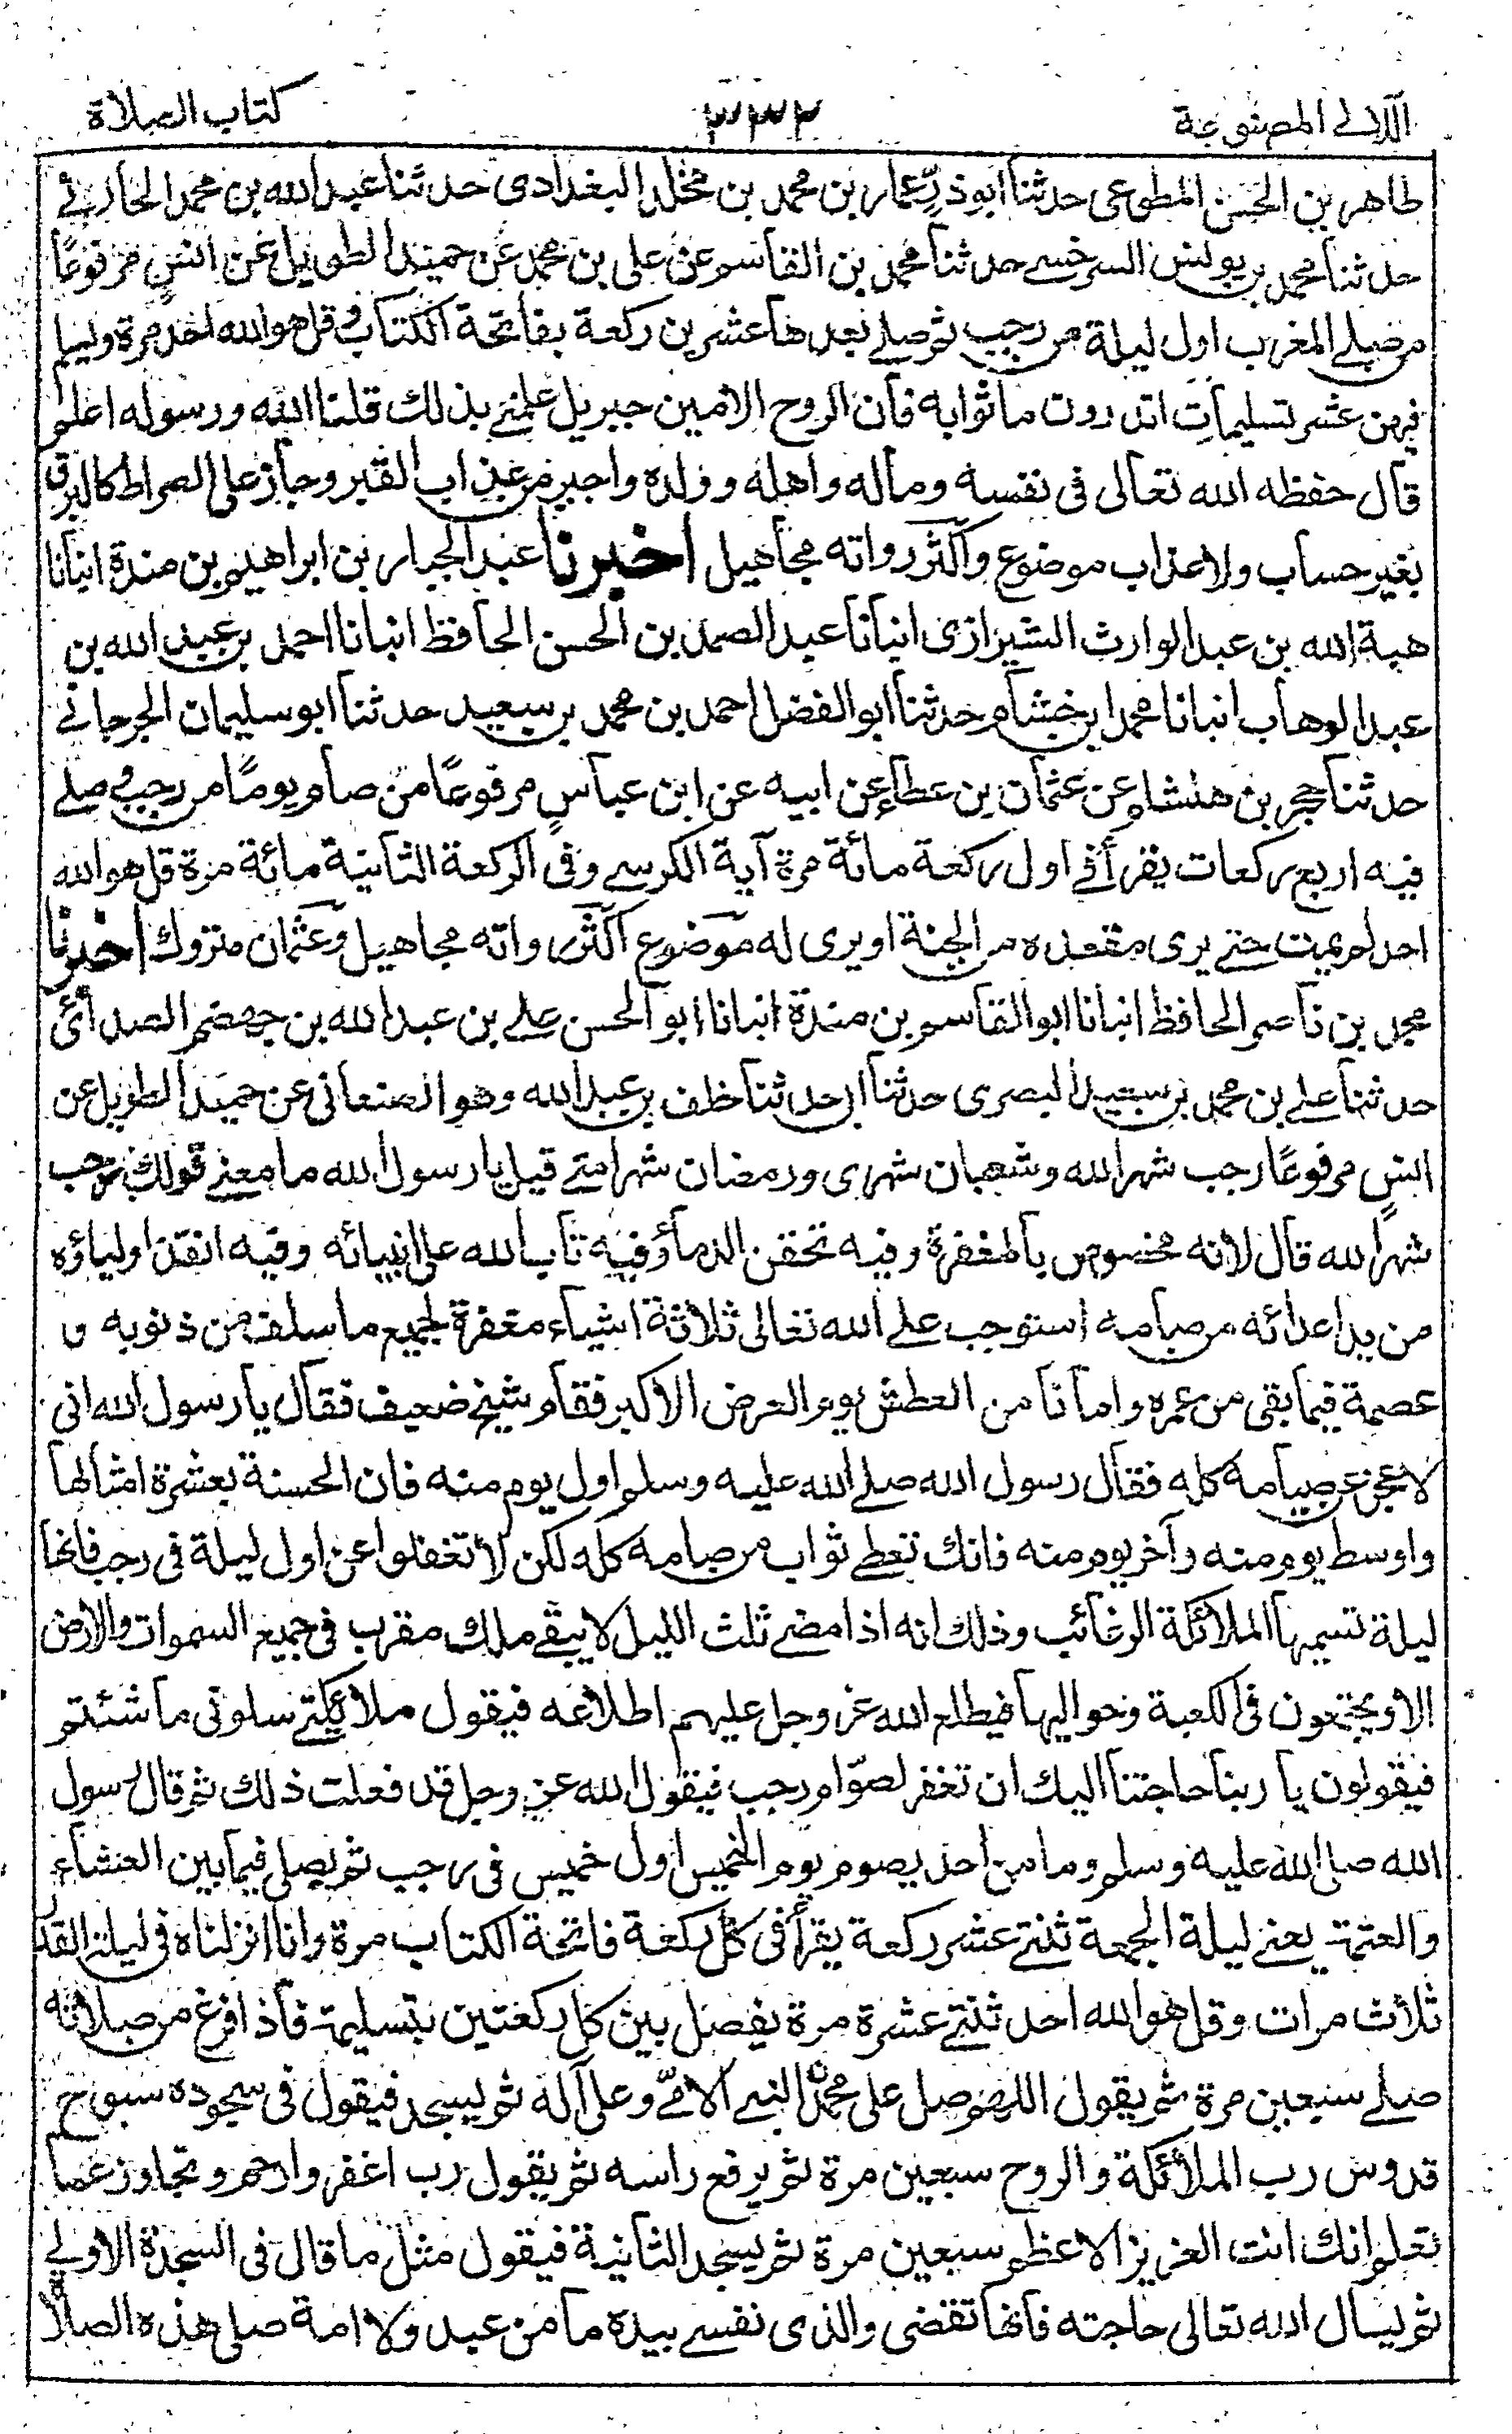 اللآلئ المصنوعة ٣٣٢ كتاب الصلاة
طاهر بن الحسن المطوعى حدثنا ابو ذرّ عمار بن محمد بن مخلد البغدادى حدثنا عبد الله بن محمد الحارثى
حدثنا محمد بن يونس السرخسى حدثنا محمد بن القاسم عن على بن محمد عن حميد الطويل عن انسٍ مرفوعًا
من صلى المغرب اول ليلة من رجب ثم صلى بعدها عشرين ركعة بفاتحة الكتاب و قل هو الله احد مرة ويسلم
فيهن عشر تسليمات اتدرون ما ثوابه فان الروح الامين جبريل علمنى بذلك قلنا الله ورسوله اعلم
قال حفظه الله تعالى فى نفسه وماله واهله وولده واجير من عذاب القبر وجاز على الصراط كالبرق
بغير حساب ولا عذاب موضوع واكثر رواته مجاهيل اخبرنا عبد الجبار بن ابراهيم بن مندة انبانا
هبة الله بن عبد الوارث الشيرازى انبانا عبد الصمد بن الحسن الحافظ انبانا احمد بن عبيد الله بن
عبد الوهاب انبانا محمد ابن خشام حدثنا ابو الفضل احمد بن محمد بن سعيد حدثنا ابو سليمان الجرجانى
حدثنا حجر بن هشام عن عثمان بن عطاء عن ابيه عن ابن عباسٍ مرفوعًا من صام يومًا من رجب و صلى
فيه اربع ركعات يقرأ فى اول ركعة مائة مرة آية الكرسى وفى الركعة الثانية مائة مرة قل هو الله
احد لم يمت حتى يرى مقعده من الجنة او يرى له موضوع اكثر رواته مجاهيل وعثمان متروك اخبرنا
محمد بن ناصر الحافظ انبانا ابو القاسم بن مندة انبانا ابو الحسن على بن عبد الله بن جهضم الصدائى
حدثنا على بن محمد بن سعيد البصرى حدثنا ابى حدثنا خلف بن عبد الله وهو الصنعانى عن حميد الطويل عن
انسٍ مرفوعًا رجب شهر الله وشعبان شهرى ورمضان شهر امتى قيل يا رسول الله ما معنى قولك رجب
شهر الله قال لانه مخصوص بالمغفرة وفيه تحقن الدماء وفيه تاب الله على انبيائه وفيه انقذ اولياؤه
من يد اعدائه من صامه استوجب على الله تعالى ثلاثة اشياء مغفرة لجميع ما سلف من ذنوبه و
عصمة فيما بقى من عمره وامانا من العطش يوم العرض الاكبر فقام شيخ ضعيف فقال يا رسول الله انى
لاعجز عن صيامه كله فقال رسول الله صلى الله عليه وسلم اول يوم منه فان الحسنة بعشرة امثالها
واوسط يوم منه وآخر يوم منه فانك تعطى ثواب من صامه كله لكن لا تغفلوا عن اول ليلة فى رجب فانها
ليلة تسميها الملائكة الرغائب وذلك انه اذا مضى ثلث الليل لا يبقى ملك مقرب فى جميع السموات والارض
الا ويجتمعون فى الكعبة وحواليها فيطلع الله عز وجل عليهم اطلاعه فيقول ملائكتى سلونى ما شئتم
فيقولون يا ربنا حاجتنا اليك ان تغفر لصوّام رجب فيقول الله عز وجل قد فعلت ذلك ثم قال رسول
الله صلى الله عليه وسلم وما من احد يصوم يوم الخميس اول خميس فى رجب ثم يصلى فيما بين العشاء
والعتمة يعنى ليلة الجمعة ثنتى عشر ركعة يقرأ فى كل ركعة فاتحة الكتاب مرة وانا انزلناه فى ليلة القدر
ثلاث مرات وقل هو الله احد ثنتى عشرة مرة يفصل بين كل ركعتين بتسليمة فاذا فرغ من صلاته
صلى سبعين مرة ثم يقول اللهم صل على محمد النبى الامىّ وعلى آله ثم يسجد فيقول فى سجوده سبوح
قدوس رب الملائكة والروح سبعين مرة ثم يرفع راسه ثم يقول رب اغفر وارحم وتجاوز عما
تعلم انك انت العزيز الاعظم سبعين مرة ثم يسجد الثانية فيقول مثل ما قال فى السجدة الاولى
ثم يسال الله تعالى حاجته فانها تقضى والذى نفسى بيده ما من عبد ولا امة صلى هذه الصلاة